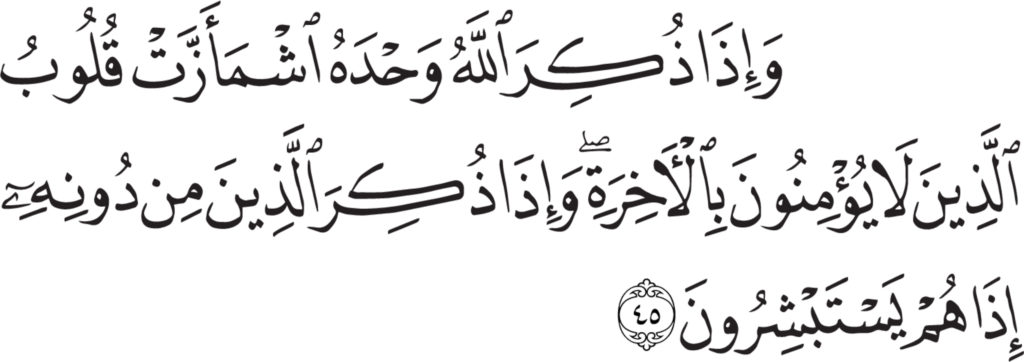 وَإِذَا ذُكِرَ ٱللَّهُ وَحْدَهُ ٱشْمَأَزَّتْ قُلُوبُ
ٱلَّذِينَ لَا يُؤْمِنُونَ بِٱلْأَخِرَةِ ۖ وَإِذَا ذُكِرَ ٱلَّذِينَ مِن دُونِهِۦٓ
إِذَا هُمْ يَسْتَبْشِرُونَ ٤٥